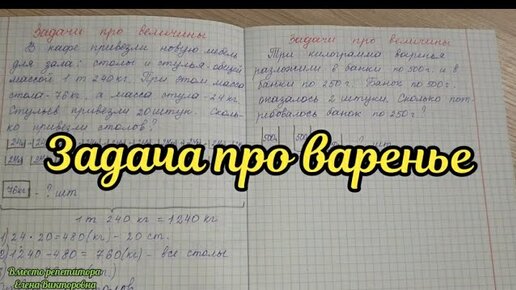 Задачи про величины
В кафе привезли новую мебель
для зала: столы и стулья общей
массой 1 т 240 кг. При этом масса
стола - 76 кг, а масса стула - 24 кг.
Стульев привезли 20 штук. Сколь-
ко привезли столов?
76кг - ? шт
1 т 240 кг = 1240 кг
1) 24 · 20 = 480 (кг) - 20 ст.
2) 1240 - 480 = 760 (кг) - все столы
Задачи про величины
Три килограмма варенья
разложили в банки по 500г. и в
банки по 250 г. Банок по 500г.
оказалось 2 штуки. Сколько пот-
ребовалось банок по 250г?
Задача про варенье
Вместо репетитора
Елена Викторовна